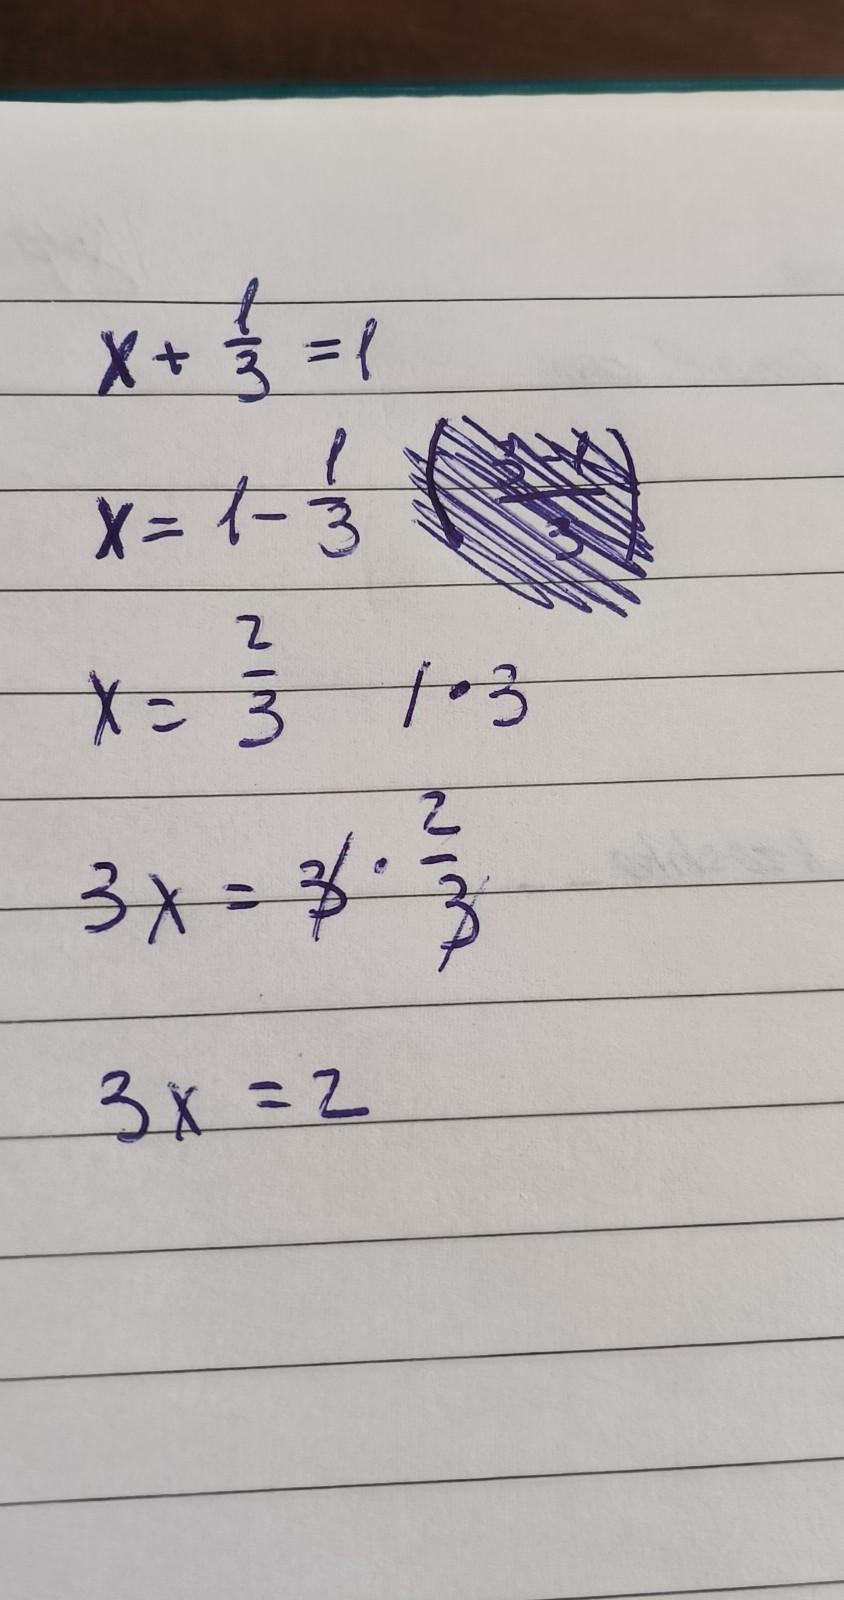 x + 1/3 = 1
x = 1 - 1/3
x = 2/3 / · 3
3x = 3 · 2/3
3x = 2